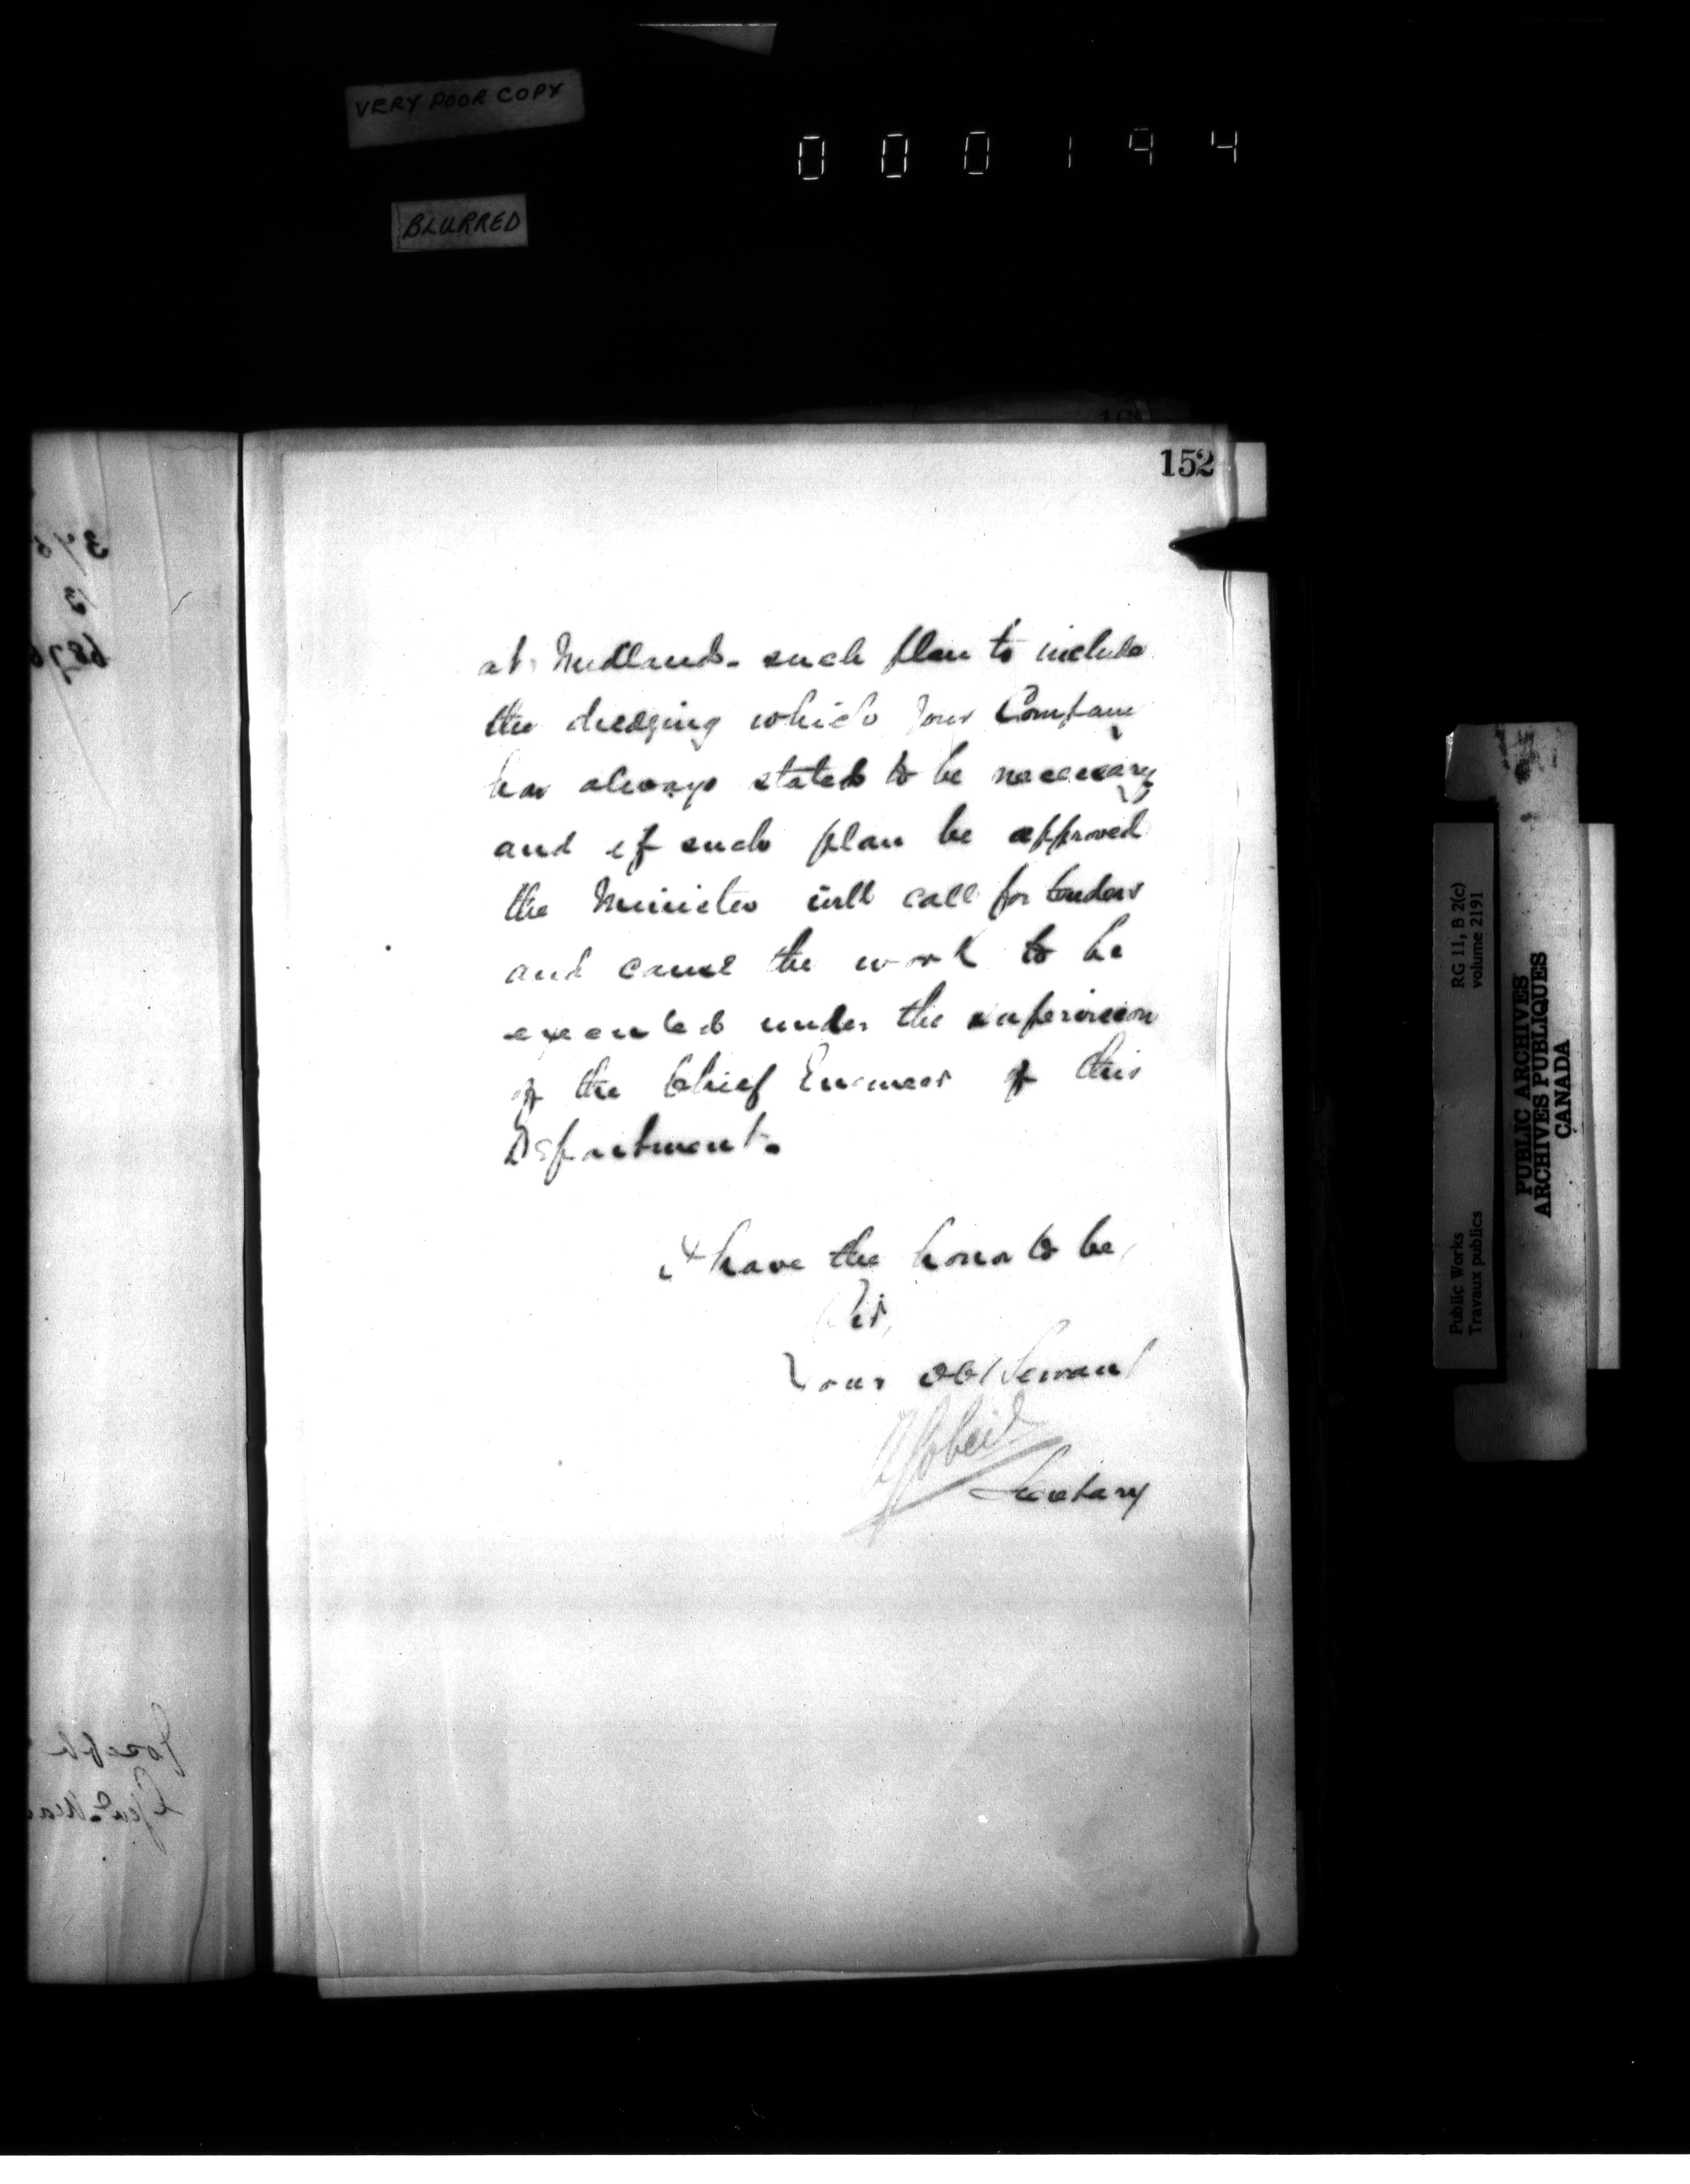 VERY POOR COPY
000194
BLURRED
152
at Midland. such plan to include
the dredging which your Company
has always stated to be necessary
and if such plan be approved
the Minister will call for tenders
and cause the work to be
executed under the supervision
of the Chief Engineer of this
Department.
I have the honor to be,
Sir,
Your obt Servant
A Gobeil
Secretary
RG 11, B 2(c)
volume 2191
Public Works
Travaux publics
PUBLIC ARCHIVES
ARCHIVES PUBLIQUES
CANADA
Joseph